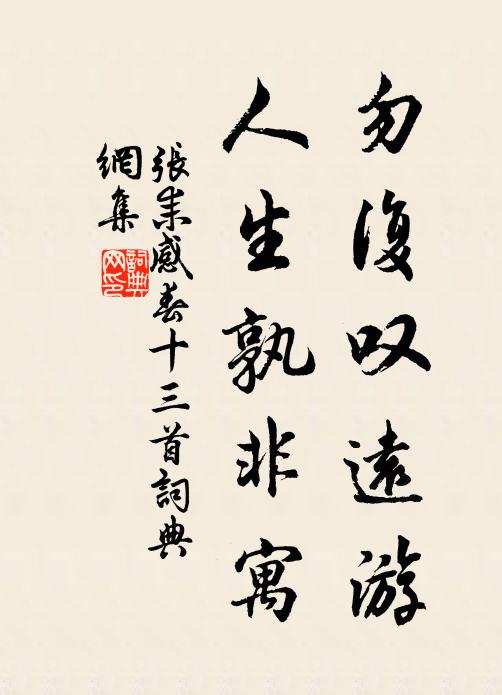 勿復叹遠游
人生孰非寓
張耒感春十三首詞典
網集
詞典
网印